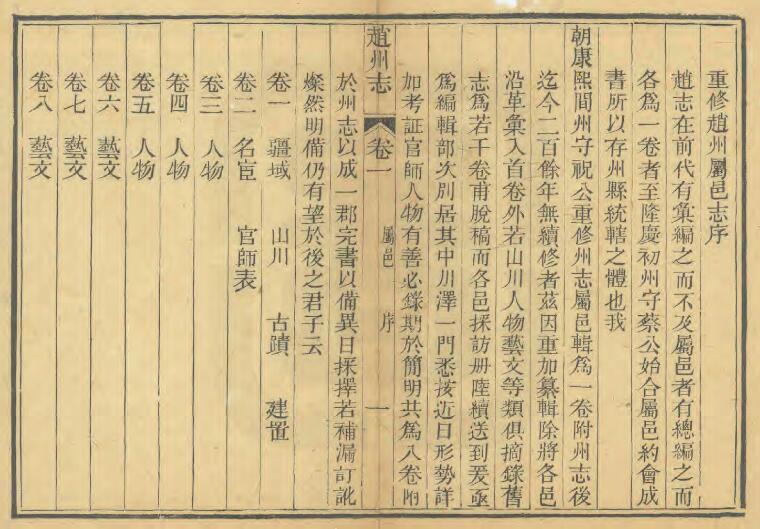 重修趙州屬邑志序
趙志在前代有彙編之而不及屬邑者有總編之而
各爲一卷者至隆慶初州守蔡公始合屬邑約會成
書所以存州縣統轄之體也我
朝康熙間州守祝公重修州志屬邑輯爲一卷附州志後
迄今二百餘年無續修者茲因重加纂輯除將各邑
沿革彙入首卷外若山川人物藝文等類俱摘錄舊
志爲若干卷甫脫稿而各邑採訪册陸續送到爰亟
爲編輯部次別居其中川澤一門悉按近日形勢詳
加考証官師人物有善必錄期於簡明共爲八卷附
趙州志
卷一
屬邑
序
一
於州志以成一郡完書以備異日採擇若補漏訂訛
燦然明備仍有望於後之君子云
卷一 疆域 山川 古蹟 建置
卷二 名宦 官師表
卷三 人物
卷四 人物
卷五 人物
卷六 藝文
卷七 藝文
卷八 藝文